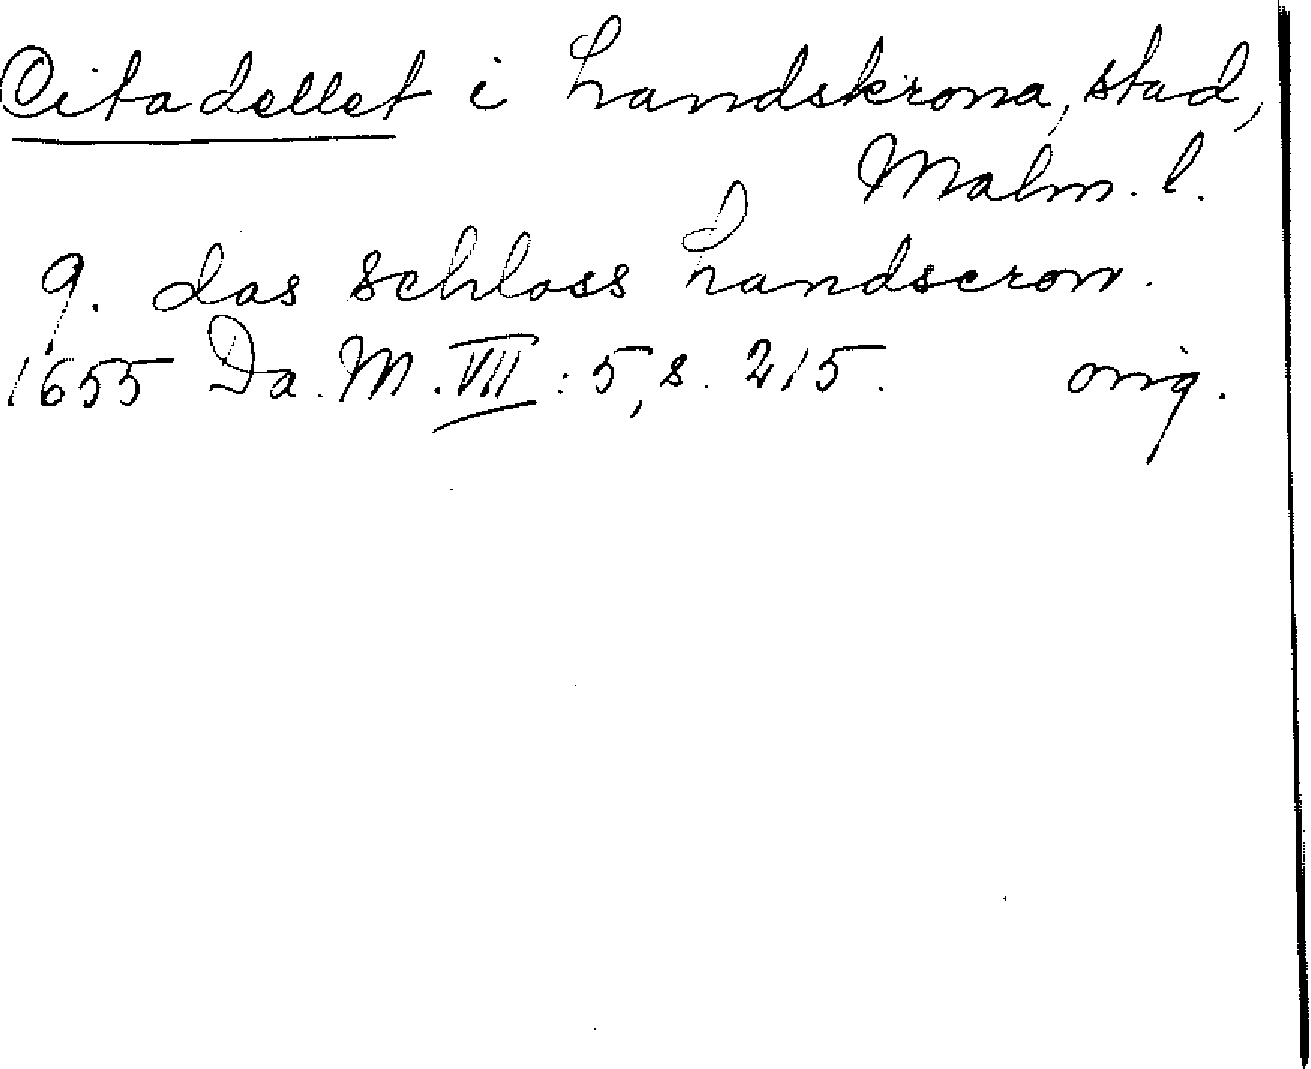 Citadellet i Landskrona, stad,
Malm. l.
q. das schloss Landscron.
1655 Da. M. VII : 5, s. 215. orig.